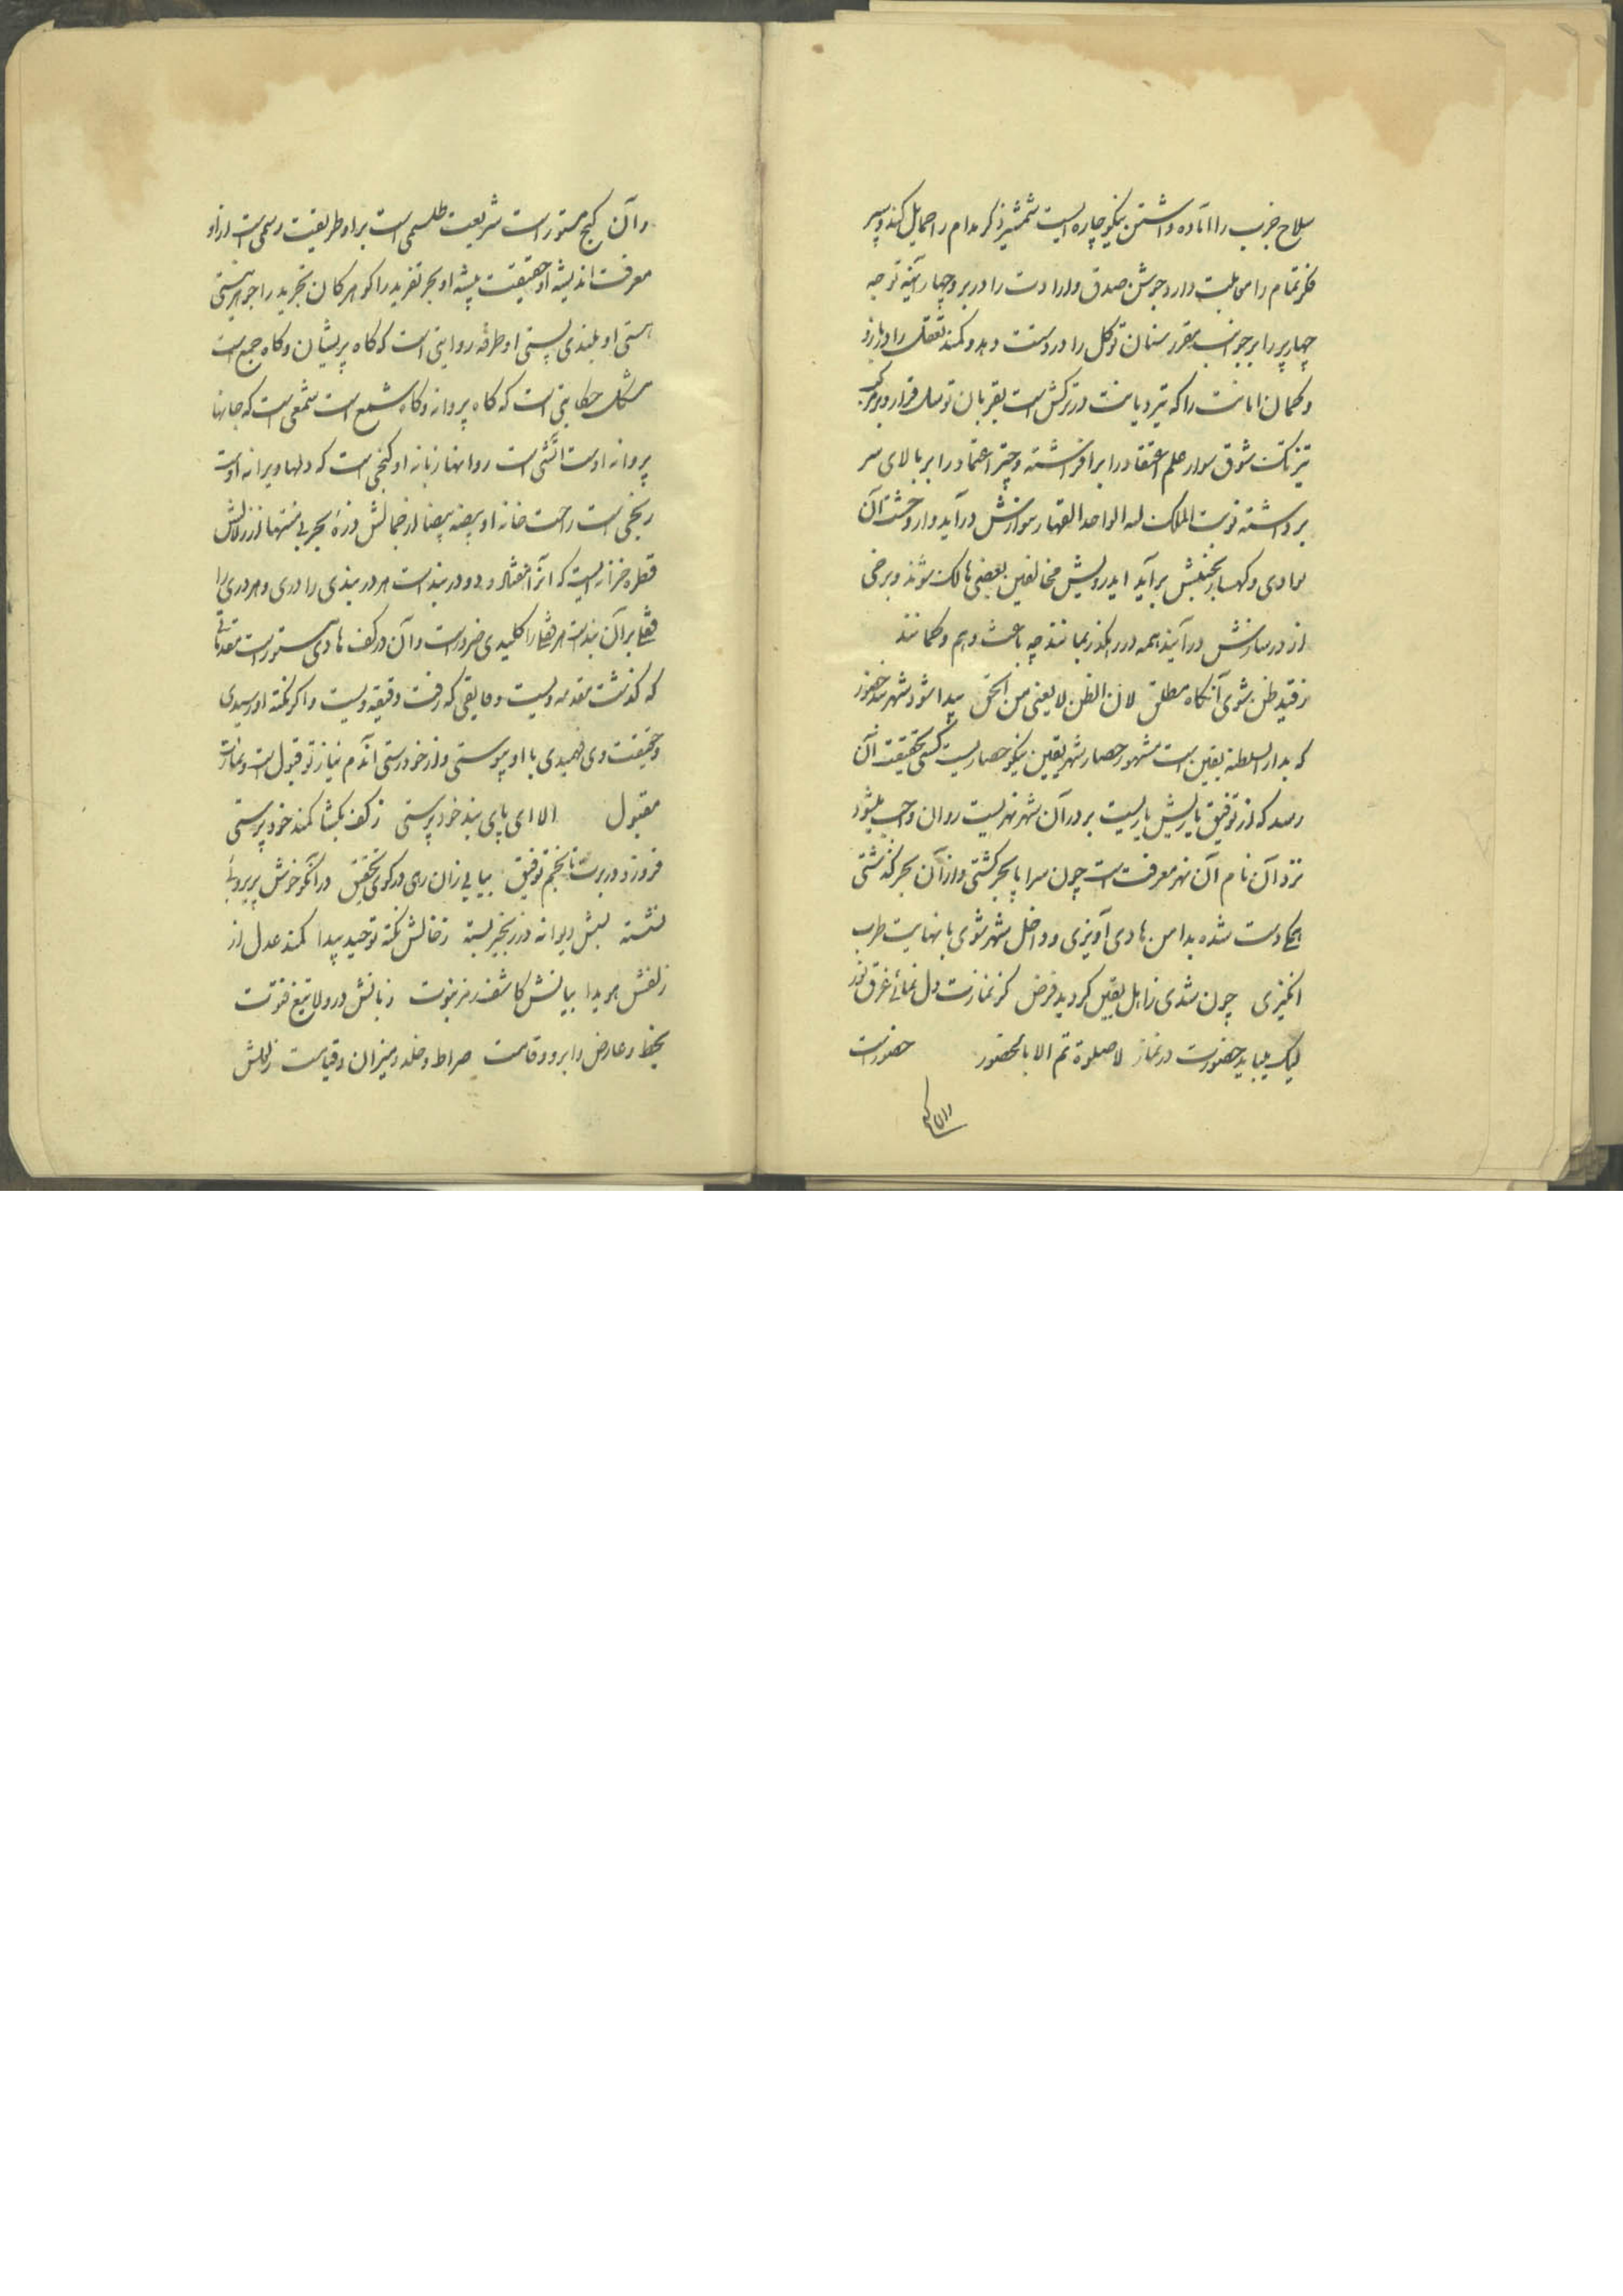 سلاح حرب را آماده داشتن نیکو چاره ایست شمشیر ذکر مدام را حمایل کند و سپر
فکر تمام را مواظبت دارد جوشن صدق و ارادت را در بر و چهار آئینه توجه
چهار پر را بر جوانب مقرر سنان توکل را در دست دهد و کمند تعقل را در بازو
و کمان امانت را که تیر دیانت در ترکش است بقربان توسل قرار دهد بر مرکب
تیزتک شوق سوار علم اعتقاد را بر افراشته و چتر اعتماد را بر بالای سر
بر داشته نوبت الملک لله الواحد القهار بنوازش در آید و از وحشت آن
بوادی و کهسار بجنبش بر آید ایدرویش مخالفین بعضی هالک شوند و برخی
از در سازش در آیند همه در رهگذر بمانند چه باعث وهم و گمانند
ز قید ظن شوی آنگاه مطلق لان الظن لا یغنی من الحق پیدا شود شهر بند حضور
که بدار السلطنه یقین است مشهور حصار شهر یقین نیکو حصاریست کسی بحقیقت آن
رسد که از توفیق یاریش یاریست بر در آن شهر نهریست روان واجب میشود
نزد آن نام آن نهر معرفت است چون سراپا بحر گشتی و از آن بحر گذشتی
یکدست شده بدامن هادی آویزی و داخل شهر شوی با نهایت طرب
انگیزی چون شدی ز اهل یقین گردید فرض کز نمازت دل نمائی غرق نور
لیک میباید حضورت در نماز لا صلوة تم الا بالحضور حضور است
و آن گنج مستور است شریعت طلسمی است بر او طریقت رسمی است از او
معرفت اندیشه او حقیقت پیشه او بحر تفرید را گوهر کان تجرید را جوهر نیستی
هستی او بلندی پستی او طرفه روایتی است که گاه پریشان و گاه جمع است
مشکل حکایتی است که گاه پروانه و گاه شمع است شمعی است که جانها
پروانه اوست آتشی است روانها زبانه او گنجی است که دلها ویرانه اوست
رنجی است راحت خانه او بیضه بیضا از جمالش ذره بحر بی منتها از زلالش
قطره خزانه ایست که آنرا هفتاد و دو در بند است هر در بندی را دری و هر دری را
قفلی بر آن بند است هر قفلی را کلیدی ضرور است و آن در کف هادی مستور است مقدماتی
که گذشت مقدمه ویست و دقایقی که رفت دقیقه ویست و اگر بنکته او رسیدی
و حقیقت وی فهمیدی با او پیوستی و از خود رستی آندم نیاز تو قبول است و نمازت
مقبول الا ای پای بند خود پرستی ز کف بگشا کمند خود پرستی
فروزد در برت تا نجم توفیق بیا بی زان رهی در کوی تحقیق در آن کو خوش پریروئی
نشسته لبش دیوانه در زنجیر بسته ز خالش نکته توحید پیدا کمند عدل از
زلفش هویدا بیانش کاشف رمز نبوت زبانش در ولا تیغ فتوت
بخط و عارض و ابرو و قامت صراط و خلد و میزان و قیامت ز لعلش